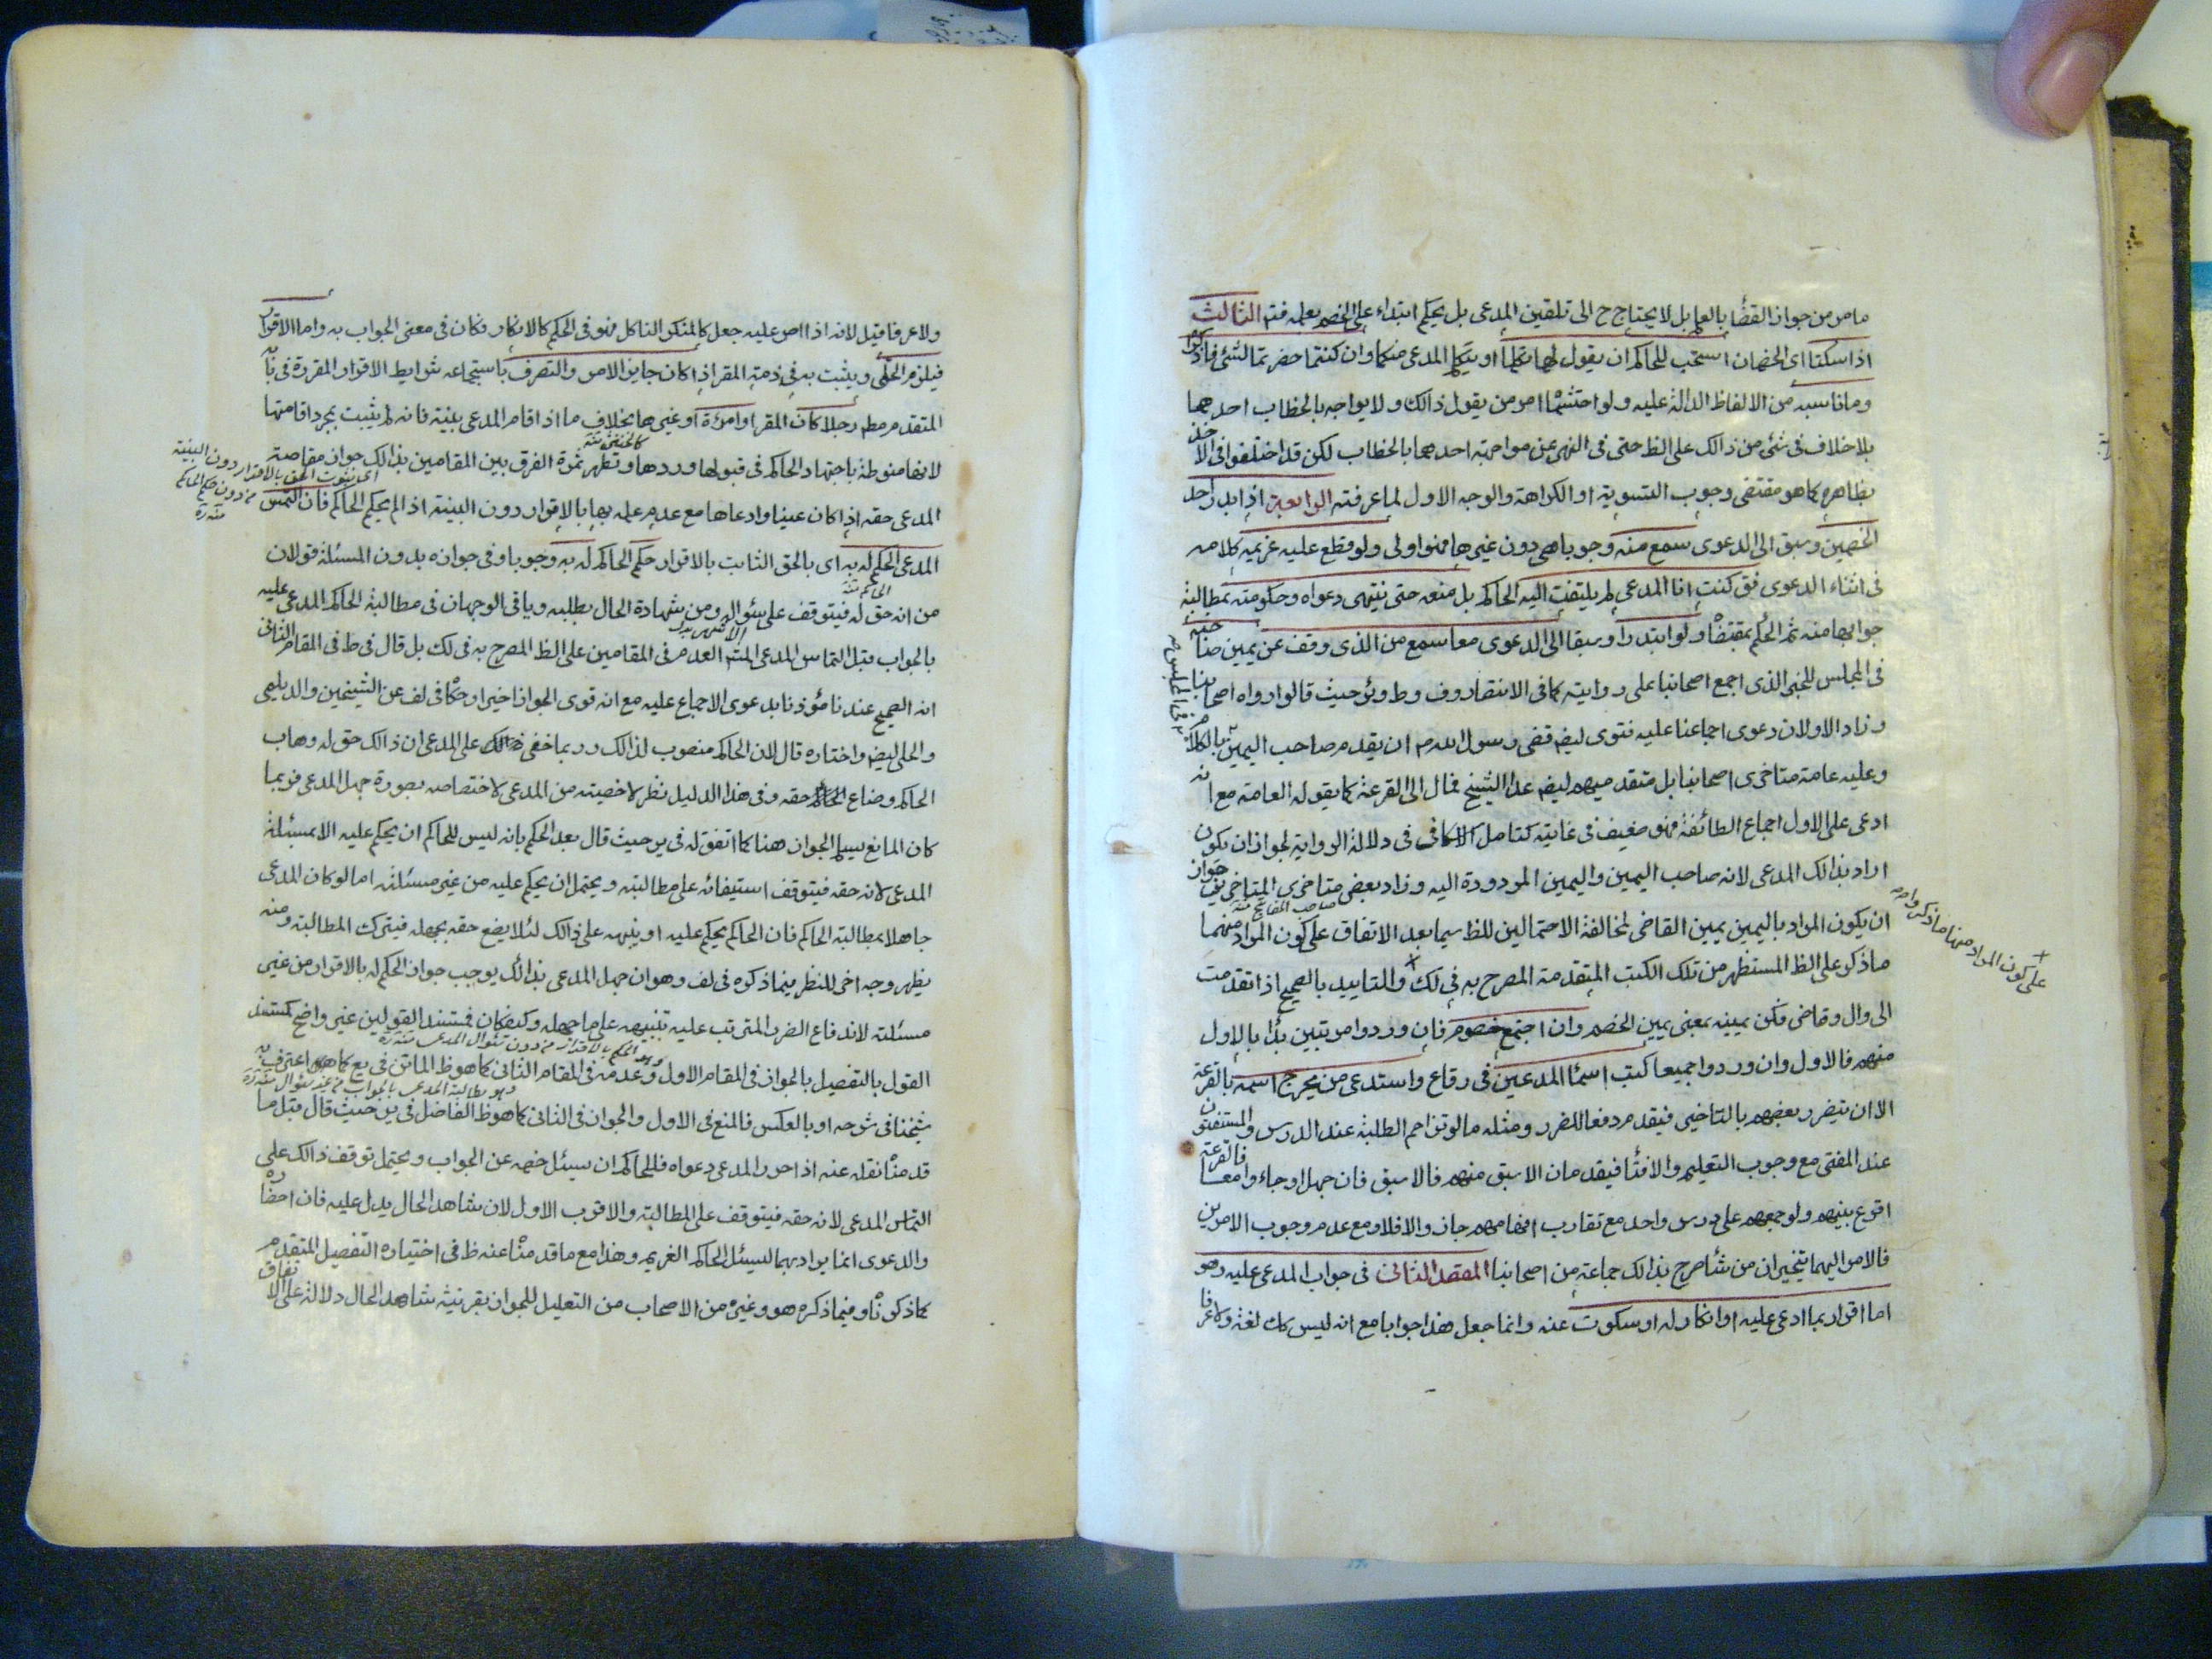 ما مر من جواز القضأ بالعلم بل لا يحتاج ح الى تلقين المدعى بل يحكم ابتداء على الخصم بعلمه فتم الثالث
اذا سكتا اى الخصمان استحب للحاكم ان يقول لهما تكلما او يتكلم المدعى منكما وان كنتما حضرتما لشئ فاذكرا
وما ناسبه من الالفاظ الدالة عليه ولو احتشماه امر من يقول ذالك ولا يواجه بالخطاب احدهما
بلا خلاف فى شئ من ذالك على الظ حتى فى النهى عن مواجهة احدهما بالخطاب لكن قد اختلفوا فى الاخذ
بظاهره كما هو مقتضى وجوب التسوية او الكراهة والوجه الاول لما عرفته الرابعة اذا بدر احد
الخصمين وسبق الى الدعوى سمع منه وجوبا هى دون غيرها فهو اولى ولو قطع عليه غريمه كلامه
فى اثناء الدعوى فق كنت انا المدعى لم يلتفت اليه الحاكم بل منعه حتى ينتهى دعواه وحكومته بمطالبة
جوابها منه ثم الحكم بمقتضاه ولو ابتدرا وسبقا الى الدعوى معا سمع من الذى وقف عن يمين صاحبه
فى المجلس للخبر الذى اجمع اصحابنا على روايته كما فى الانتصار وف وط وئر حيث قالوا رواه اصحابنا
وزاد الاولان دعوى اجماعنا عليه فتوى ليضم قضى رسول الله ص ان يقدم صاحب اليمين بالكلام
وعليه عامة متاخرى اصحابنا بل متقدميهم ليضم عدا الشيخ فمال الى القرعة كما يقوله العامة مع انه
ادعى على الاول اجماع الطائفة فهو ضعيف فى غايته كتامل الاسكافى فى دلالة الرواية لجواز ان يكون
اراد بذالك المدعى لانه صاحب اليمين واليمين المردودة اليه وزاد بعض متاخرى المتاخرين جواز
صاحب المفاتيح منه
ان يكون المراد باليمين يمين القاضى لمخالفة الاحتمالين للظ سيما بعد الاتفاق على كون المراد منهما
على كون المراد منهما ما ذكروا
ما ذكر على الظ المستظهر من تلك الكتب المتقدمة المصرح به فى لك والتاييد بالصحيح اذا تقدمت
الى وال وقاضى فكن يمينه بمعنى يمين الخصم وان اجتمع خصوم فان وردوا مرتبين بدأ بالاول
منهم فالاول وان وردوا جميعا كتب اسمأ المدعين فى رقاع واستدعى من يخرج اسمه بالقرعة
الا ان يتضرر بعضهم بالتاخير فيقدم دفعا للضرر ومثله ما لو تزاحم الطلبة عند الدرس والمستفتون
عند المفتى مع وجوب التعليم والافتأ فيقدمان الاسبق منهم فالاسبق فان جهل او جاءوا معا فالقرعة
اقرع بينهم ولو جمعهم على درس واحد مع تقارب افهامهم جاز والا فلا ومع عدم وجوب الامرين
فالامر اليهما يتخيران من شأا صرح بذالك جماعة من اصحابنا المقصد الثانى فى جواب المدعى عليه وهو
اما اقرار بما ادعى عليه او انكار له او سكوت عنه وانما جعل هذا جوابا مع انه ليس كك لغة ولا عرفا
ولا عرفا فقيل لانه اذا اصر عليه جعل كالمنكر الناكل فهو فى الحكم كالانكار فكان فى معنى الجواب به واما الاقرار
فيلزم الحق ويثبت به فى ذمة المقر اذا كان جايز الامر والتصرف باستجماعه شرايط الاقرار المقررة فى بابه
المتقدم مطم رجلا كان المقر او امرئة او غيرهما بخلاف ما اذا اقام المدعى بينة فانه لم يثبت بمجرد اقامتها
كالخنثى منه
لانها منوطة باجتهاد الحاكم فى قبولها وردها وتظهر ثمرة الفرق بين المقامين بذالك جواز مقاصة
اى بثبوت الحق بالاقرار دون البينة من دون حكم الحاكم منه ره
المدعى حقه اذا كان عينا وادعاها مع عدم علمه بها بالاقرار دون البينة اذا لم يحكم الحاكم فان التمس
المدعى الحكم له به اى بالحق الثابت بالاقرار حكم الحاكم له به وجوبا وفى جوازه بدون المسئلة قولان
الحاكم منه
من انه حق له فيتوقف على سئواله ومن شهادة الحال بطلبه وياتى الوجهان فى مطالبة الحاكم المدعى عليه
بالجواب قبل التماس المدعى العدم فى المقامين على الظ المصرح به فى لك بل قال فى ط فى المقام الثانى
انه الصحيح عندنا مؤذنا بدعوى الاجماع عليه مع انه قوى الجواز اخيرا وحكاه فى لف عن الشيخين والديلمى
والحلى ليضم واختاره قال لان الحاكم منصوب لذالك وربما خفى ذالك على المدعى ان ذالك حق له وهاب
الحاكم وضاع حقه وفى هذا الدليل نظر لاخصيته من المدعى لاختصاصه بصورة جهل المدعى فربما
كان المانع يسلم الجواز هنا كما اتفق له فى ير حيث قال بعد الحكم بانه ليس للحاكم ان يحكم عليه الا بمسئلة
المدعى لانه حقه فيتوقف استيفائه على مطالبته ويحتمل ان يحكم عليه من غير مسئلته اما لو كان المدعى
جاهلا بمطالبة الحاكم فان الحاكم يحكم عليه او ينبهه على ذالك لئلا يضع حقه بجهله فيترك المطالبة ومنه
يظهر وجه اخر للنظر فيما ذكره فى لف وهو ان جهل المدعى بذالك يوجب جواز الحكم له بالاقرار من غير
مسئلته لاندفاع الضرر المترتب عليه بتنبيهه على ما جهله وكيفكان فمستند القولين غير واضح كمستند
وهو الحكم بالاقرار من دون سئوال المدعى منه ره
القول بالتفصيل بالجواز فى المقام الاول وعدمه فى المقام الثانى كما هو ظ الماتن فى يع كما هو اعترف به
وهو مطالبة المدعى بالجواب من غير سئوال منه ره
شيخنا فى شرحه او بالعكس فالمنع فى الاول والجواز فى الثانى كما هو ظ الفاضل فى ير حيث قال قبل ما
قدمناه نقله عنه اذا حرر المدعى دعواه فللحاكم ان يسئل خصمه عن الجواب ويحتمل توقف ذالك على
التماس المدعى لانه حقه فيتوقف على المطالبة والاقرب الاول لان شاهد الحال يدل عليه فان احضاره
والدعوى انما يراد بهما ليسئل الحاكم الغريم وهذا مع ما قدمناه عنه ظ فى اختياره التفصيل المتقدم
كما ذكرناه وفيما ذكره هو وغيره من الاصحاب من التعليل للجواز بقرينة شاهد الحال دلالة على الاتفاق